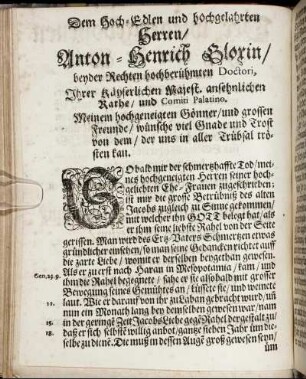 Dem Hoch-Edlen und hochgelahrten
Herren/
Anton-Henrich Gloxin/
beyder Rechten hochberühmten Doctori,
Ihrer Käyserlichen Majest. ansehnlichen
Rathe/ und Comiti Palatino,
Meinem hochgeneigten Gönner/ und grossen
Freunde/ wünsche viel Gnade und Trost
von dem/ der uns in aller Trübsal trö-
sten kan.
SObald mir der schmertzhaffte Tod/ mei-
nes hochgeneigten Herren seiner hoch-
geliebten Ehe-Frauen zugeschrieben;
ist mir die grosse Betrübniß des alten
Jacobs zugleich zu Sinne gekommen/
mit welcher ihn GOTT belegt hat/ als
er ihm seine liebste Rahel von der Seite
gerissen. Man werd des Ertz-Vaters Schmertzen etwas
gründlicher einsehen/ so man seine Gedancken richtet auff
die zarte Liebe/ womit er derselben beygethan gewesen.
Als er zu erst nach Haran in Mesopotamia/ kam/ und
Gen. 29. 9. ihm die Rahel begegnet/ sahe er sie alsobald mit grosser
Bewegung seines Gemühtes an/ küssete sie/ und weinete
11. laut. Wie er darauf von ihr zu Laban gebracht wurd/ und
nun ein Monath lang bey demselben gewesen war/ nam
15. in der geringē Zeit Jacobs Liebe gegē Rahel dergestalt zu/
18. daß er sich selbst willig anbot/ gantzer sieben Jahr üm die-
selbe zu dienē. Die muß in dessen Augē groß gewesen seyn/
üm